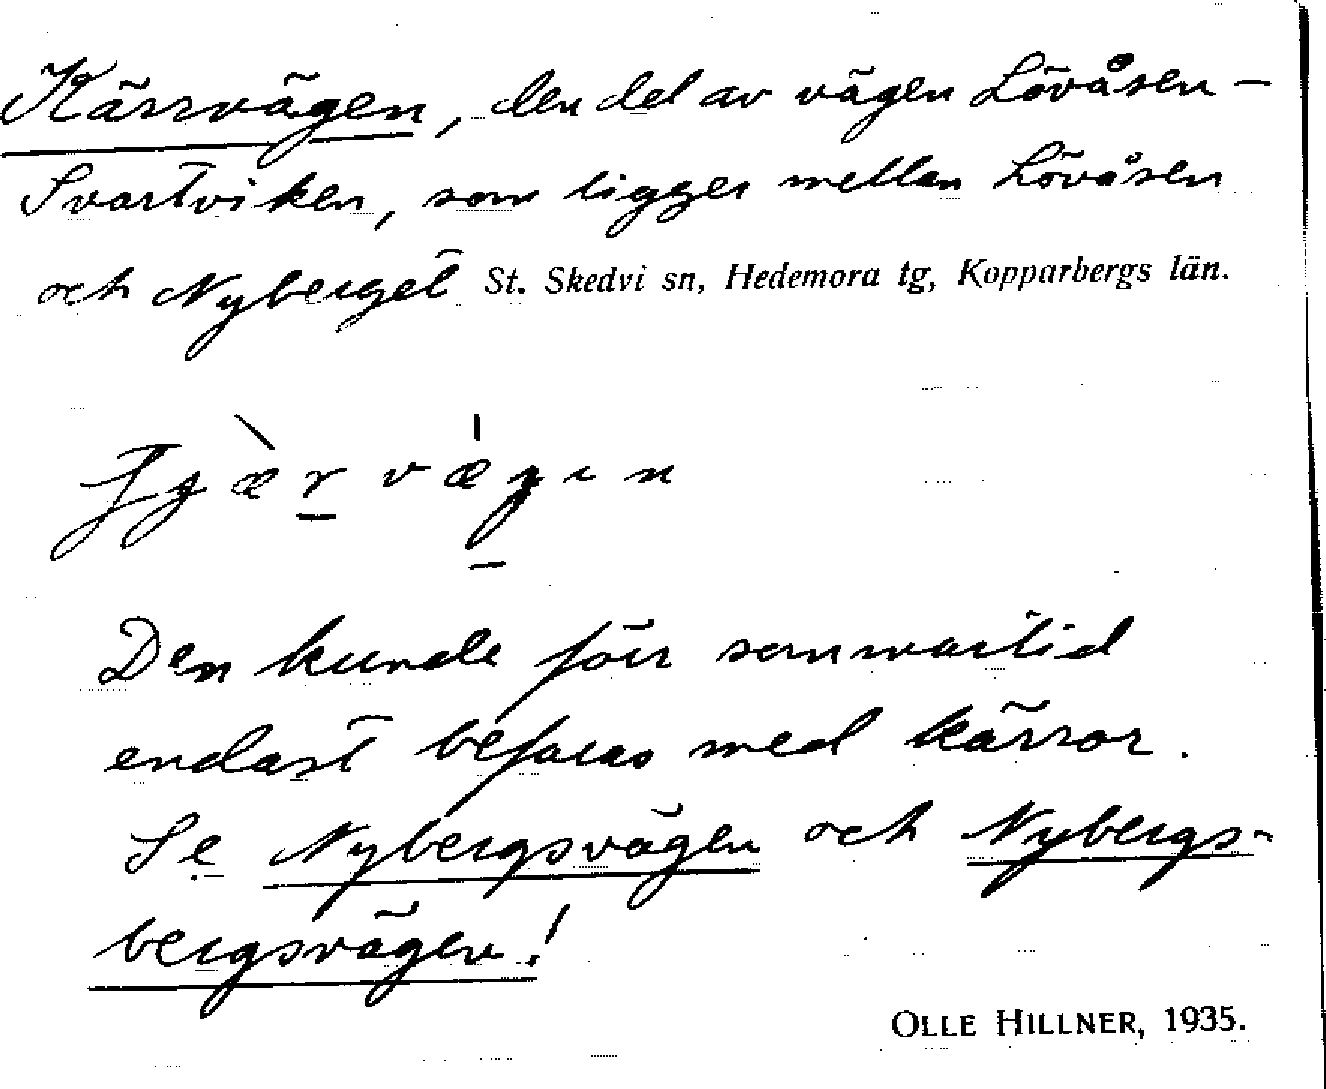 Kärrvägen, den del av vägen Lövåsen –
Svartviken, som ligger mellan Lövåsen
och Nyberget St. Skedvi sn, Hedemora tg, Kopparbergs län.
Den kunde förr sommartid
endast befaras med kärror.
Se Nybergsvägen och Nybergs-
bergsvägen!
OLLE HILLNER, 1935.